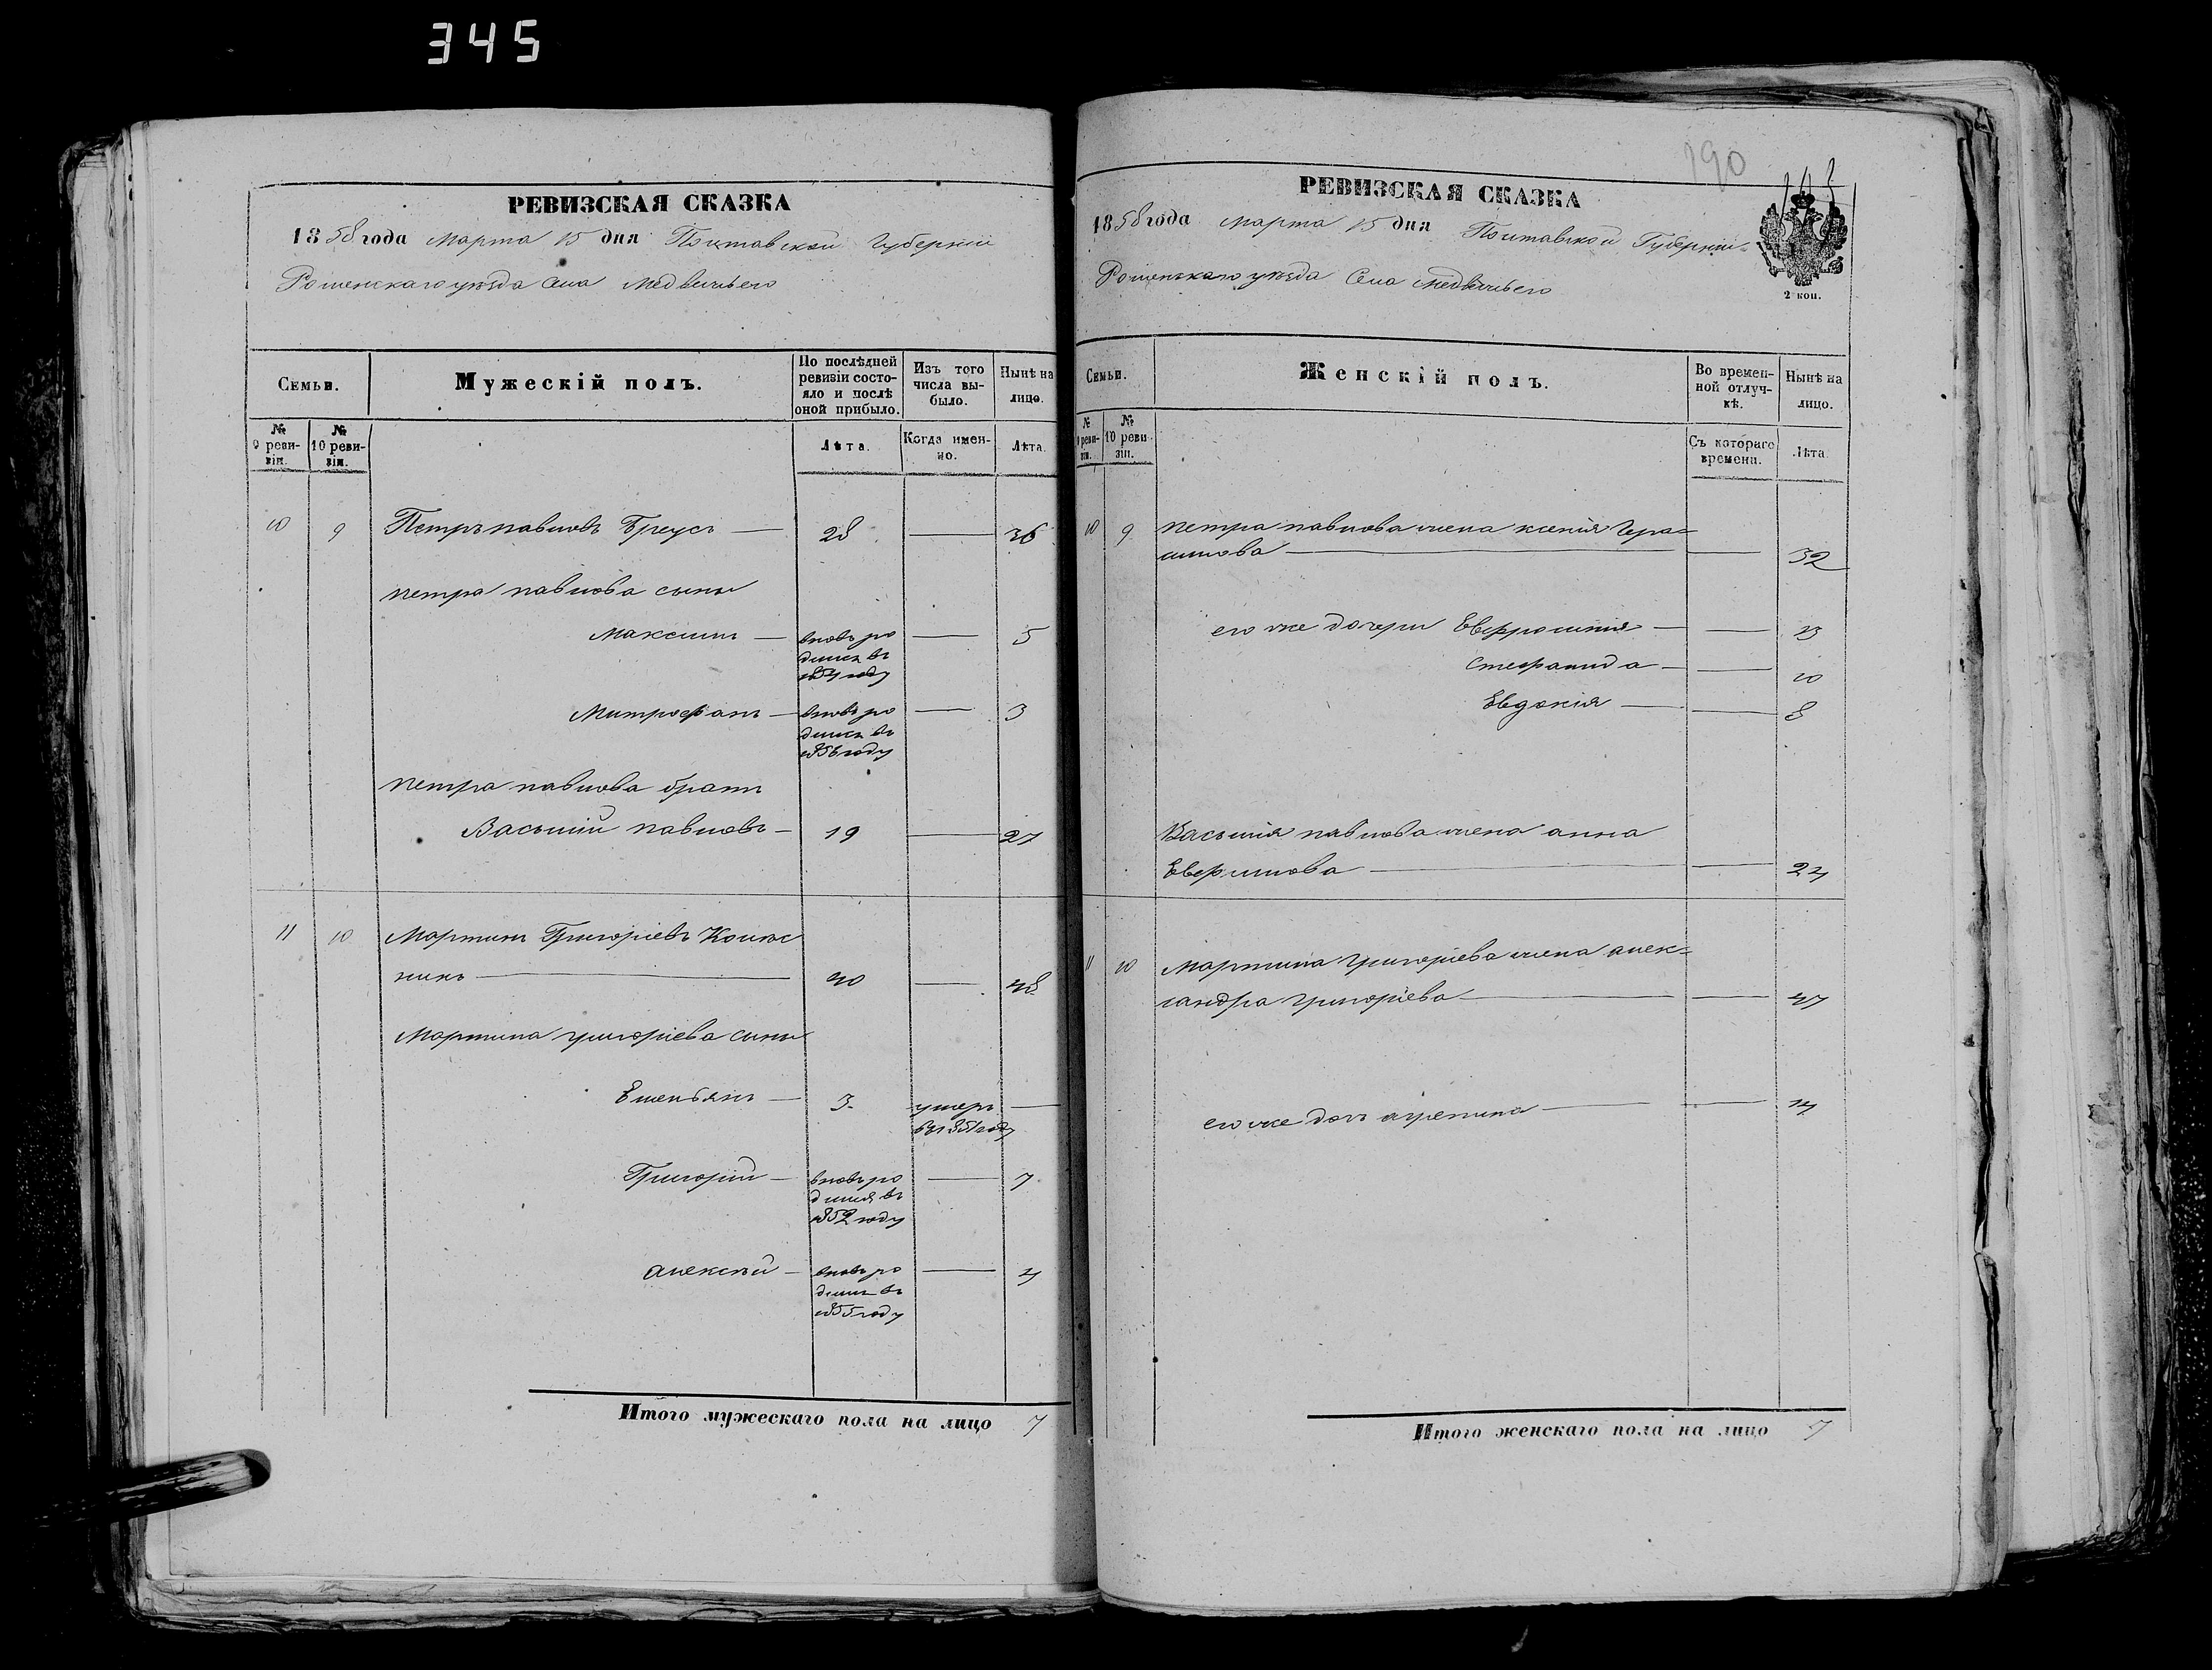 345
РЕВИЗСКАЯ СКАЗКА
1858 года Марта 15 дня Полтавской Губерніи
Роменскаго уѣзда Села Медвежьего
Семьи.
Мужескій полъ.
По послѣдней ревизіи состояло и послѣ оной прибыло.
Изъ того числа выбыло.
Нынѣ на лицо.
№ 9 ревизіи.
№ 10 ревизіи.
Лѣта.
Когда именно.
Лѣта.
10 9 Петръ павловъ Бреусъ — 28 — 36
петра павлова сыны
Максимъ — вновь ро — 5
дился въ
1854 году
Митрофанъ — вновь ро — 3
дился въ
1856 году
петра павлова братъ
Василій павловъ — 19 — 27
11 10 Мартинъ Григоріевъ Колѣс
никъ — 40 — 48
Мартина григоріева сыны
Емельянъ — 3 умеръ —
въ 1851 году
Григорій — вновь ро — 7
дился въ
1852 году
алексѣй — вновь ро — 4
дился въ
1855 году
Итого мужескаго пола на лицо 7
190
РЕВИЗСКАЯ СКАЗКА
1858 года марта 15 дня Полтавской Губерніи
Роменскаго уѣзда Села медвежьего
2 коп.
Семьи.
Женскій полъ.
Во временной отлучкѣ.
Нынѣ на лицо.
№ 9 ревизіи.
№ 10 ревизіи.
Съ котораго времени.
Лѣта.
10 9 петра павлова жена ксенія Гера=
симова — — 32
его же дочери Евфросинія — — 13
стефанида — — 10
Евдокія — — 8
Василія павлова жена анна
Ефимова — — 24
11 10 Мартина григоріева жена алек=
сандра григоріева — — 47
его же дочь агрепина — — 14
Итого женскаго пола на лицо 7